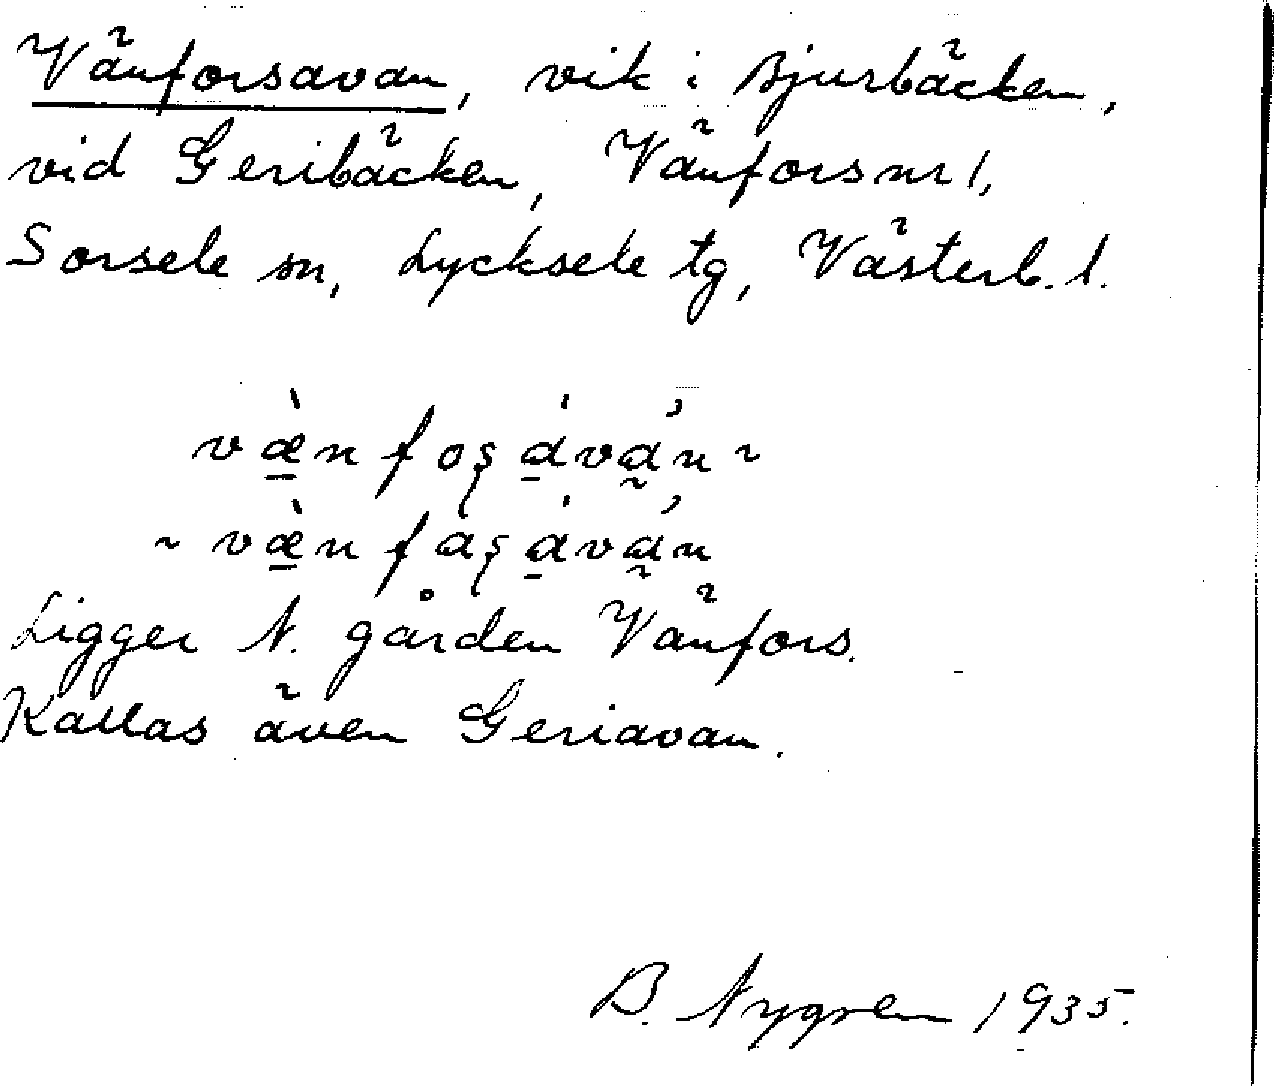 Vänforsavan, vik i Bjurbäcken,
vid Geribäcken, Vänfors nr 1,
Sorsele sn, Lycksele tg, Västerb. l.
væ̀nfoʂáván ~
~ væ̀nfaʂáván
Ligger N. gården Vänfors.
Kallas även Geriavan.
B. Nygren 1935.